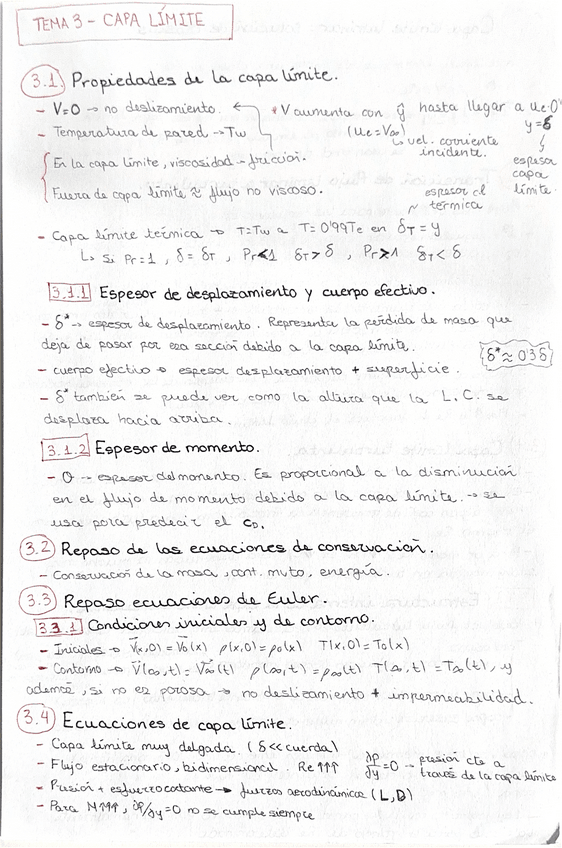 TEMA 3 - CAPA LÍMITE
3.1 Propiedades de la capa límite.
- V=0 → no deslizamiento. * V aumenta con ŷ hasta llegar a ue·0'
- Temperatura de pared → Tw (ue = V∞) y=δ
↳ vel. corriente incidente.
espesor capa límite.
En la capa límite, viscosidad - fricción.
Fuera de capa límite ≈ flujo no viscoso.
~ espesor cl térmica
- Capa límite térmica → T=Tw a T=0'99Te en δT = y
↳ Si Pr=1, δ=δT, Pr<1 δT>δ, Pr>1 δT<δ
3.1.1 Espesor de desplazamiento y cuerpo efectivo.
- δ* → espesor de desplazamiento. Representa la pérdida de masa que
deja de pasar por esa sección debido a la capa límite. δ* ≈ 0'3 δ
- cuerpo efectivo → espesor desplazamiento + superficie.
- δ* también se puede ver como la altura que la L.C. se
desplaza hacia arriba.
3.1.2 Espesor de momento.
- θ → espesor del momento. Es proporcional a la disminución
en el flujo de momento debido a la capa límite. → se
usa para predecir el CD.
3.2 Repaso de las ecuaciones de conservación.
- Conservación de la masa, cont. mvto, energía.
3.3 Repaso ecuaciones de Euler.
3.3.1 Condiciones iniciales y de contorno.
- Iniciales → V(x,0)=V0(x) ρ(x,0)=ρ0(x) T(x,0)=T0(x)
- Contorno → V(∞,t)=V∞(t) ρ(∞,t)=ρ∞(t) T(∞,t)=T∞(t), y
además, si no es porosa → no deslizamiento + impermeabilidad.
3.4 Ecuaciones de capa límite.
- Capa límite muy delgada. (δ<<cuerda)
- Flujo estacionario, bidimensional. Re↑↑↑ ∂P/∂y=0 → presión cte a
través de la capa límite
- Presión + esfuerzo cortante → fuerzas aerodinámica (L,D)
- Para M↑↑↑, ∂P/∂y=0 no se cumple siempre